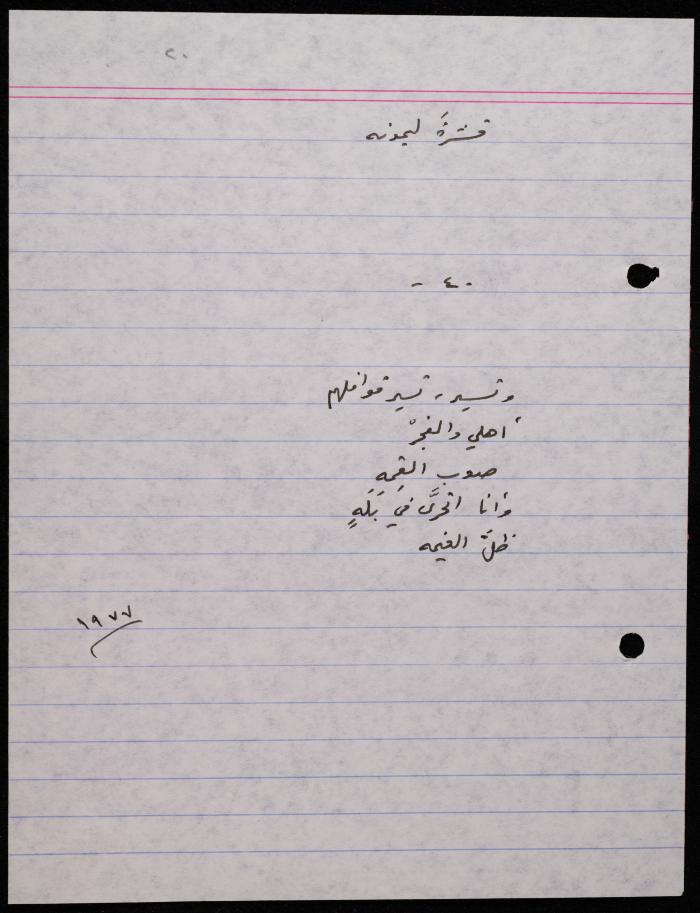 ٢٠
قشرَةُ ليمونه
- ٤ -
وتسير، تسير قوافلهم
أهلي والفجرْ
صوب القمِه
وأنا اتحرَّى في بَلَهٍ
ظلَّ الغيمه
١٩٧٧